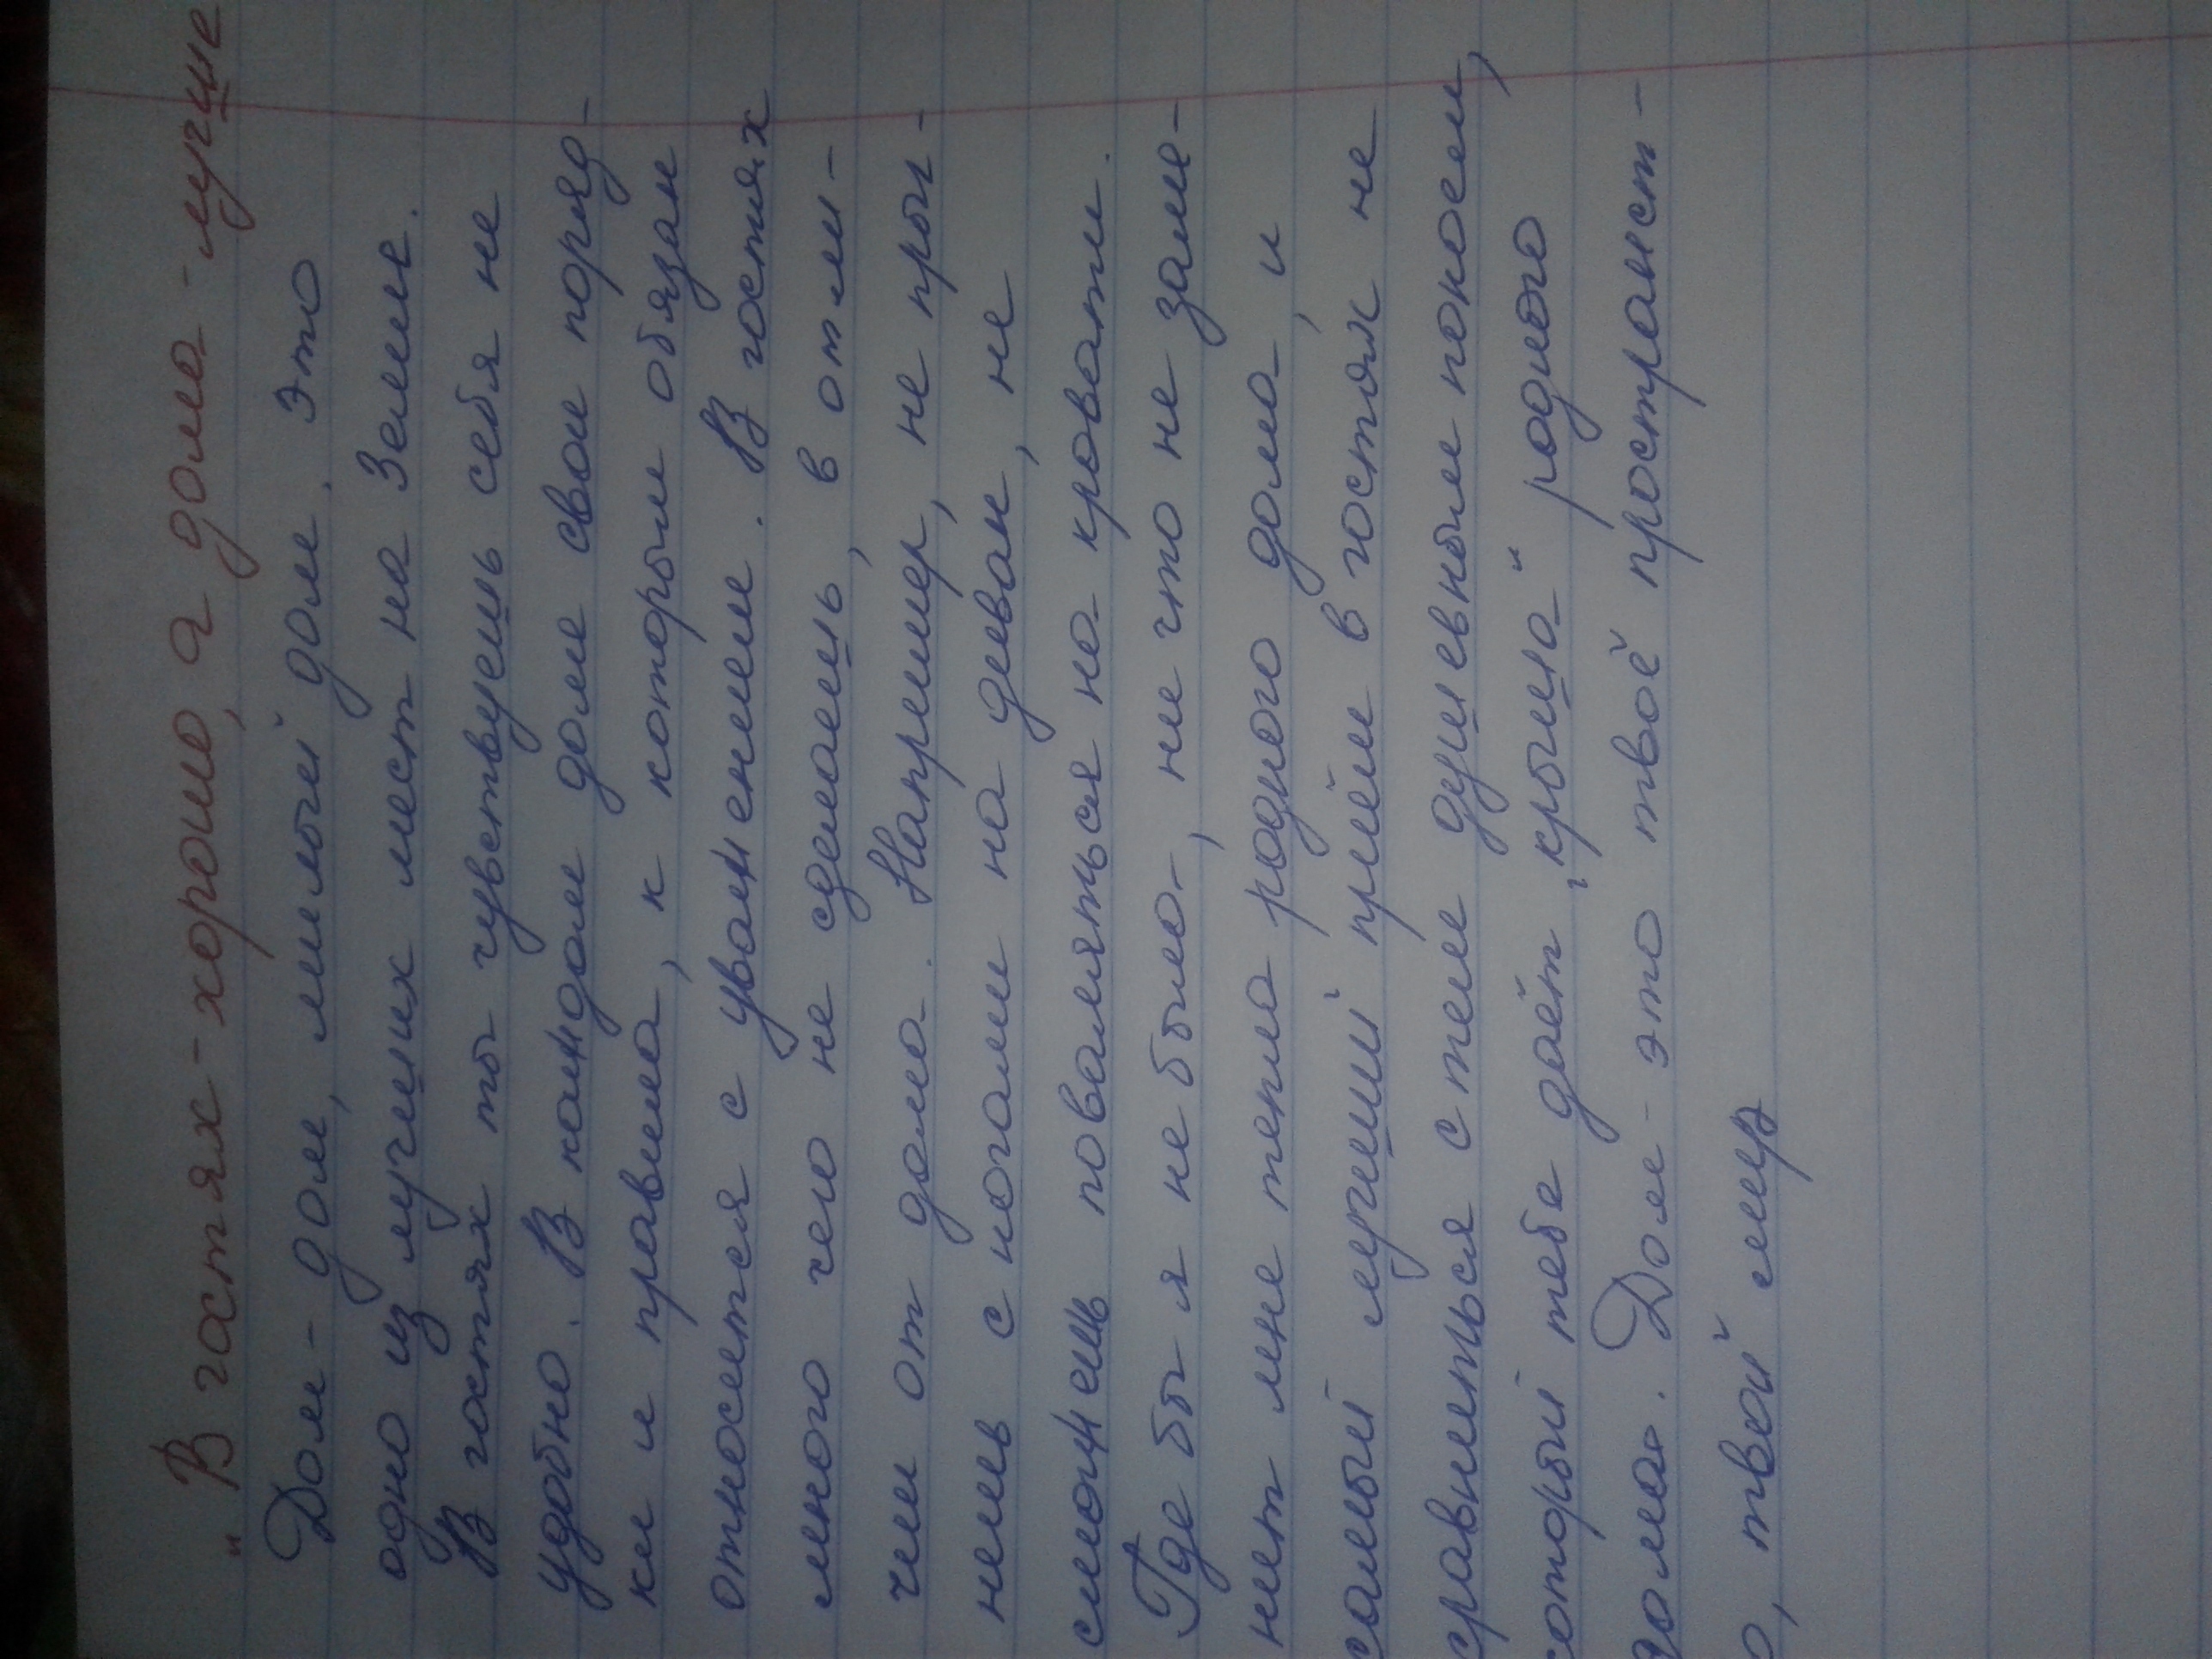 „В гостях - хорошо, а дома - лучше
Дом - дом, милый дом. Это
одно из лучших мест на Земле.
В гостях ты чувствуешь себя не
удобно. В каждом доме свои поряд-
ки и правила, к которым обязан
относится с уважением. В гостях
много чего не сделаешь, в отли-
чии от дома. Например, не прыг-
нешь с ногами на диван, не
сможешь поваляться на кровати.
Где бы я не была, ни что не заме-
нит мне тепла родного дома, и
самый лучший приём в гостях не
сравниться с тем душевным покоем,
который тебе даёт „крыша“ родного
дома. Дом - это твоё пространст-
о, твой мир